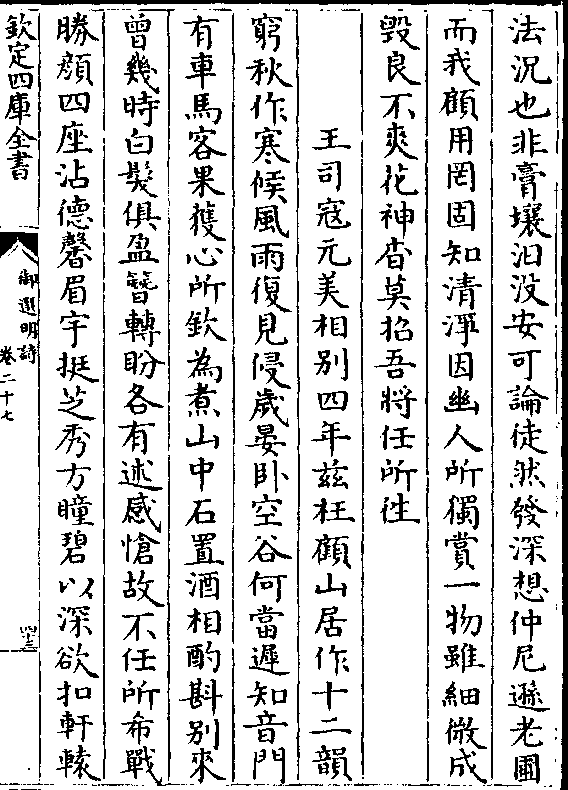 法況也非膏壤汩没安可論徒然發深想仲尼遜老圃
而我顧用罔固知清淨因幽人所獨賞一物雖細微成
毁良不爽花神杳莫招吾將任所往
王司寇元美相别四年兹枉顧山居作十二韻
窮秋作寒候風雨復見侵歲晏卧空谷何當遲知音門
有車馬客果獲心所欽為煮山中石置酒相酌斟别來
曾幾時白髮俱盈簪轉盼各有述感愴故不任所希戰
勝顔四座沾德馨眉宇挺芝秀方瞳碧以深欲扣軒轅
欽定四庫全書
御選明詩
卷二十七